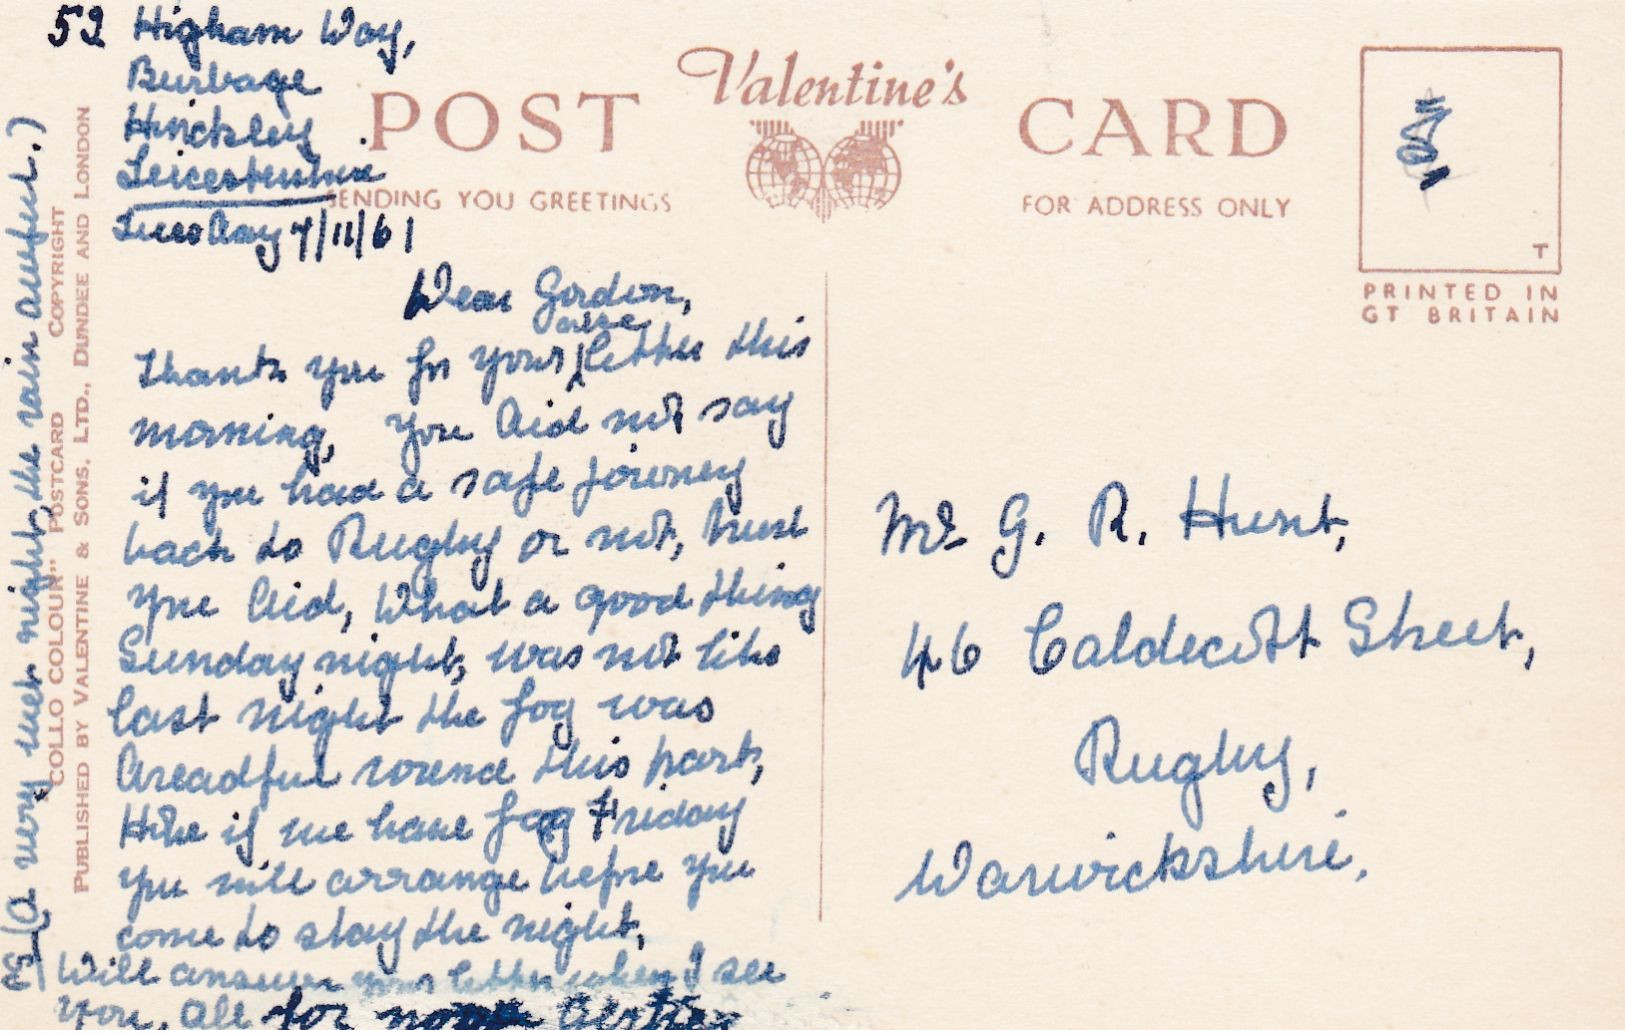 52 Higham Way,
Burbage
Hinckley
Leicestershire
Tuesday 7/11/61
Valentine's
POST CARD
SENDING YOU GREETINGS
FOR ADDRESS ONLY
T
PRINTED IN
GT BRITAIN
Dear Gordon,
Thanks you for your nice letter this
morning, you did not say
if you had a safe journey
back to Rugby or not, trust
you did, What a good thing
Sunday night, was not like
last night the fog was
dreadful round this part,
Hope if we have fog Friday
you will arrange before you
come to stay the night,
Will answer your letter when I see
you, all for now
PS (A very wet night, the rain awful.)
"COLLO COLOUR" POSTCARD COPYRIGHT
PUBLISHED BY VALENTINE & SONS, LTD., DUNDEE AND LONDON
Mr G. R. Hunt,
46 Caldecott Street,
Rugby,
Warwickshire.